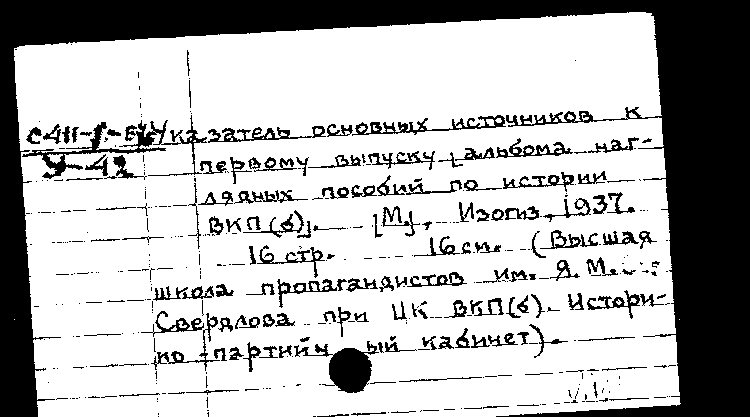 Указатель основных источников к
У-42
первому выпуску [альбома наг-
лядных пособий по истории
ВКП(б)]. [М.], Изогиз, 1937.
16 стр. 16 см. (Высшая
школа пропагандистов им. Я. М.
Свердлова при ЦК ВКП(б). Истори-
ко-партийный кабинет).